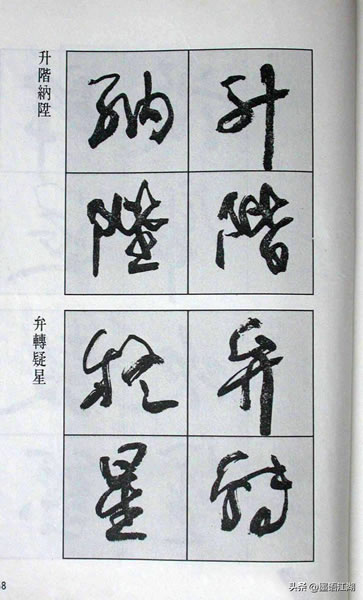 升階納陛
升階
納陛
弁轉疑星
弁轉
疑星
68
头条 @墨语江湖